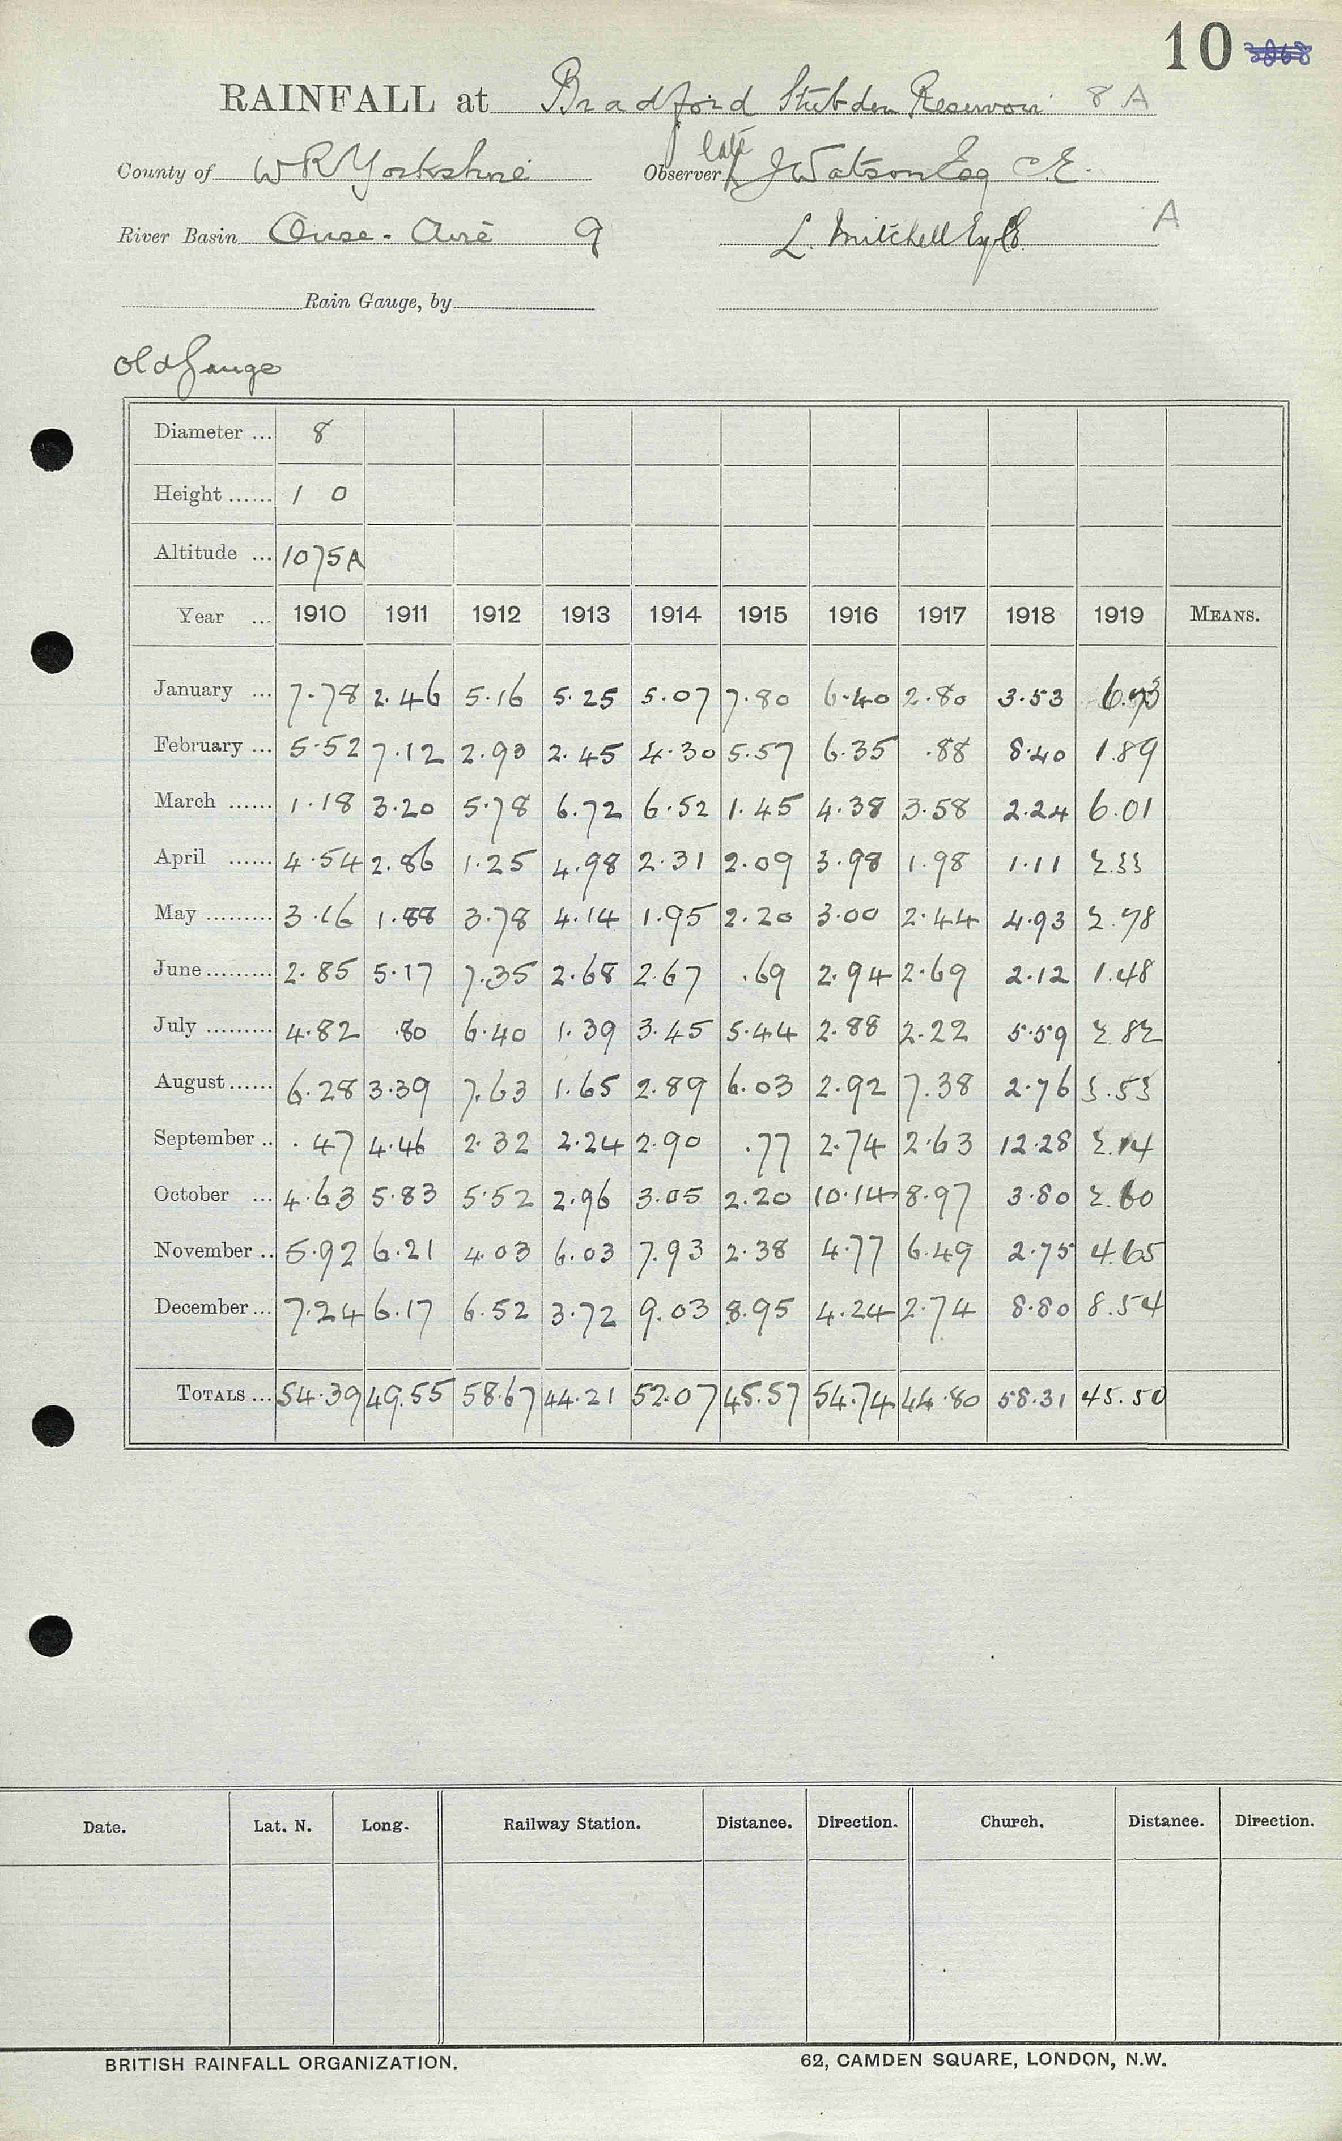 10 3068
RAINFALL at Bradford Stubden Reservoir 8 A
County of W R Yorkshire Observer late J Watson Esq C.E.
River Basin Ouse - Aire 9 L. Mitchell Esq CE A
Rain Gauge, by
Old Gauge
Diameter ... 8
Height ...... 1 0
Altitude ... 1075A
Year ... 1910 1911 1912 1913 1914 1915 1916 1917 1918 1919 MEANS.
January ... 7.78 2.46 5.16 5.25 5.07 7.80 6.40 2.80 3.53 6.73
February ... 5.52 7.12 2.93 2.45 4.30 5.57 6.35 .88 8.40 1.89
March ...... 1.18 3.20 5.78 6.72 6.52 1.45 4.38 3.58 2.24 6.01
April ...... 4.54 2.86 1.25 4.98 2.31 2.09 3.98 1.98 1.11 2.33
May ......... 3.16 1.88 3.78 4.14 1.95 2.20 3.00 2.44 4.93 2.78
June ......... 2.85 5.17 7.35 2.68 2.67 .69 2.94 2.69 2.12 1.48
July ......... 4.82 .80 6.40 1.39 3.45 5.44 2.88 2.22 5.59 2.82
August ...... 6.28 3.39 7.63 1.65 2.89 6.03 2.92 7.38 2.76 3.53
September .. .47 4.46 2.32 2.24 2.90 .77 2.74 2.63 12.28 2.14
October ... 4.63 5.83 5.52 2.96 3.05 2.20 10.14 8.97 3.80 2.60
November .. 5.92 6.21 4.03 6.03 7.93 2.38 4.77 6.49 2.75 4.65
December ... 7.24 6.17 6.52 3.72 9.03 8.95 4.24 2.74 8.80 8.54
TOTALS ... 54.39 49.55 58.67 44.21 52.07 45.57 54.74 44.80 58.31 45.50
Date. Lat. N. Long. Railway Station. Distance. Direction. Church. Distance. Direction.
BRITISH RAINFALL ORGANIZATION. 62, CAMDEN SQUARE, LONDON, N.W.